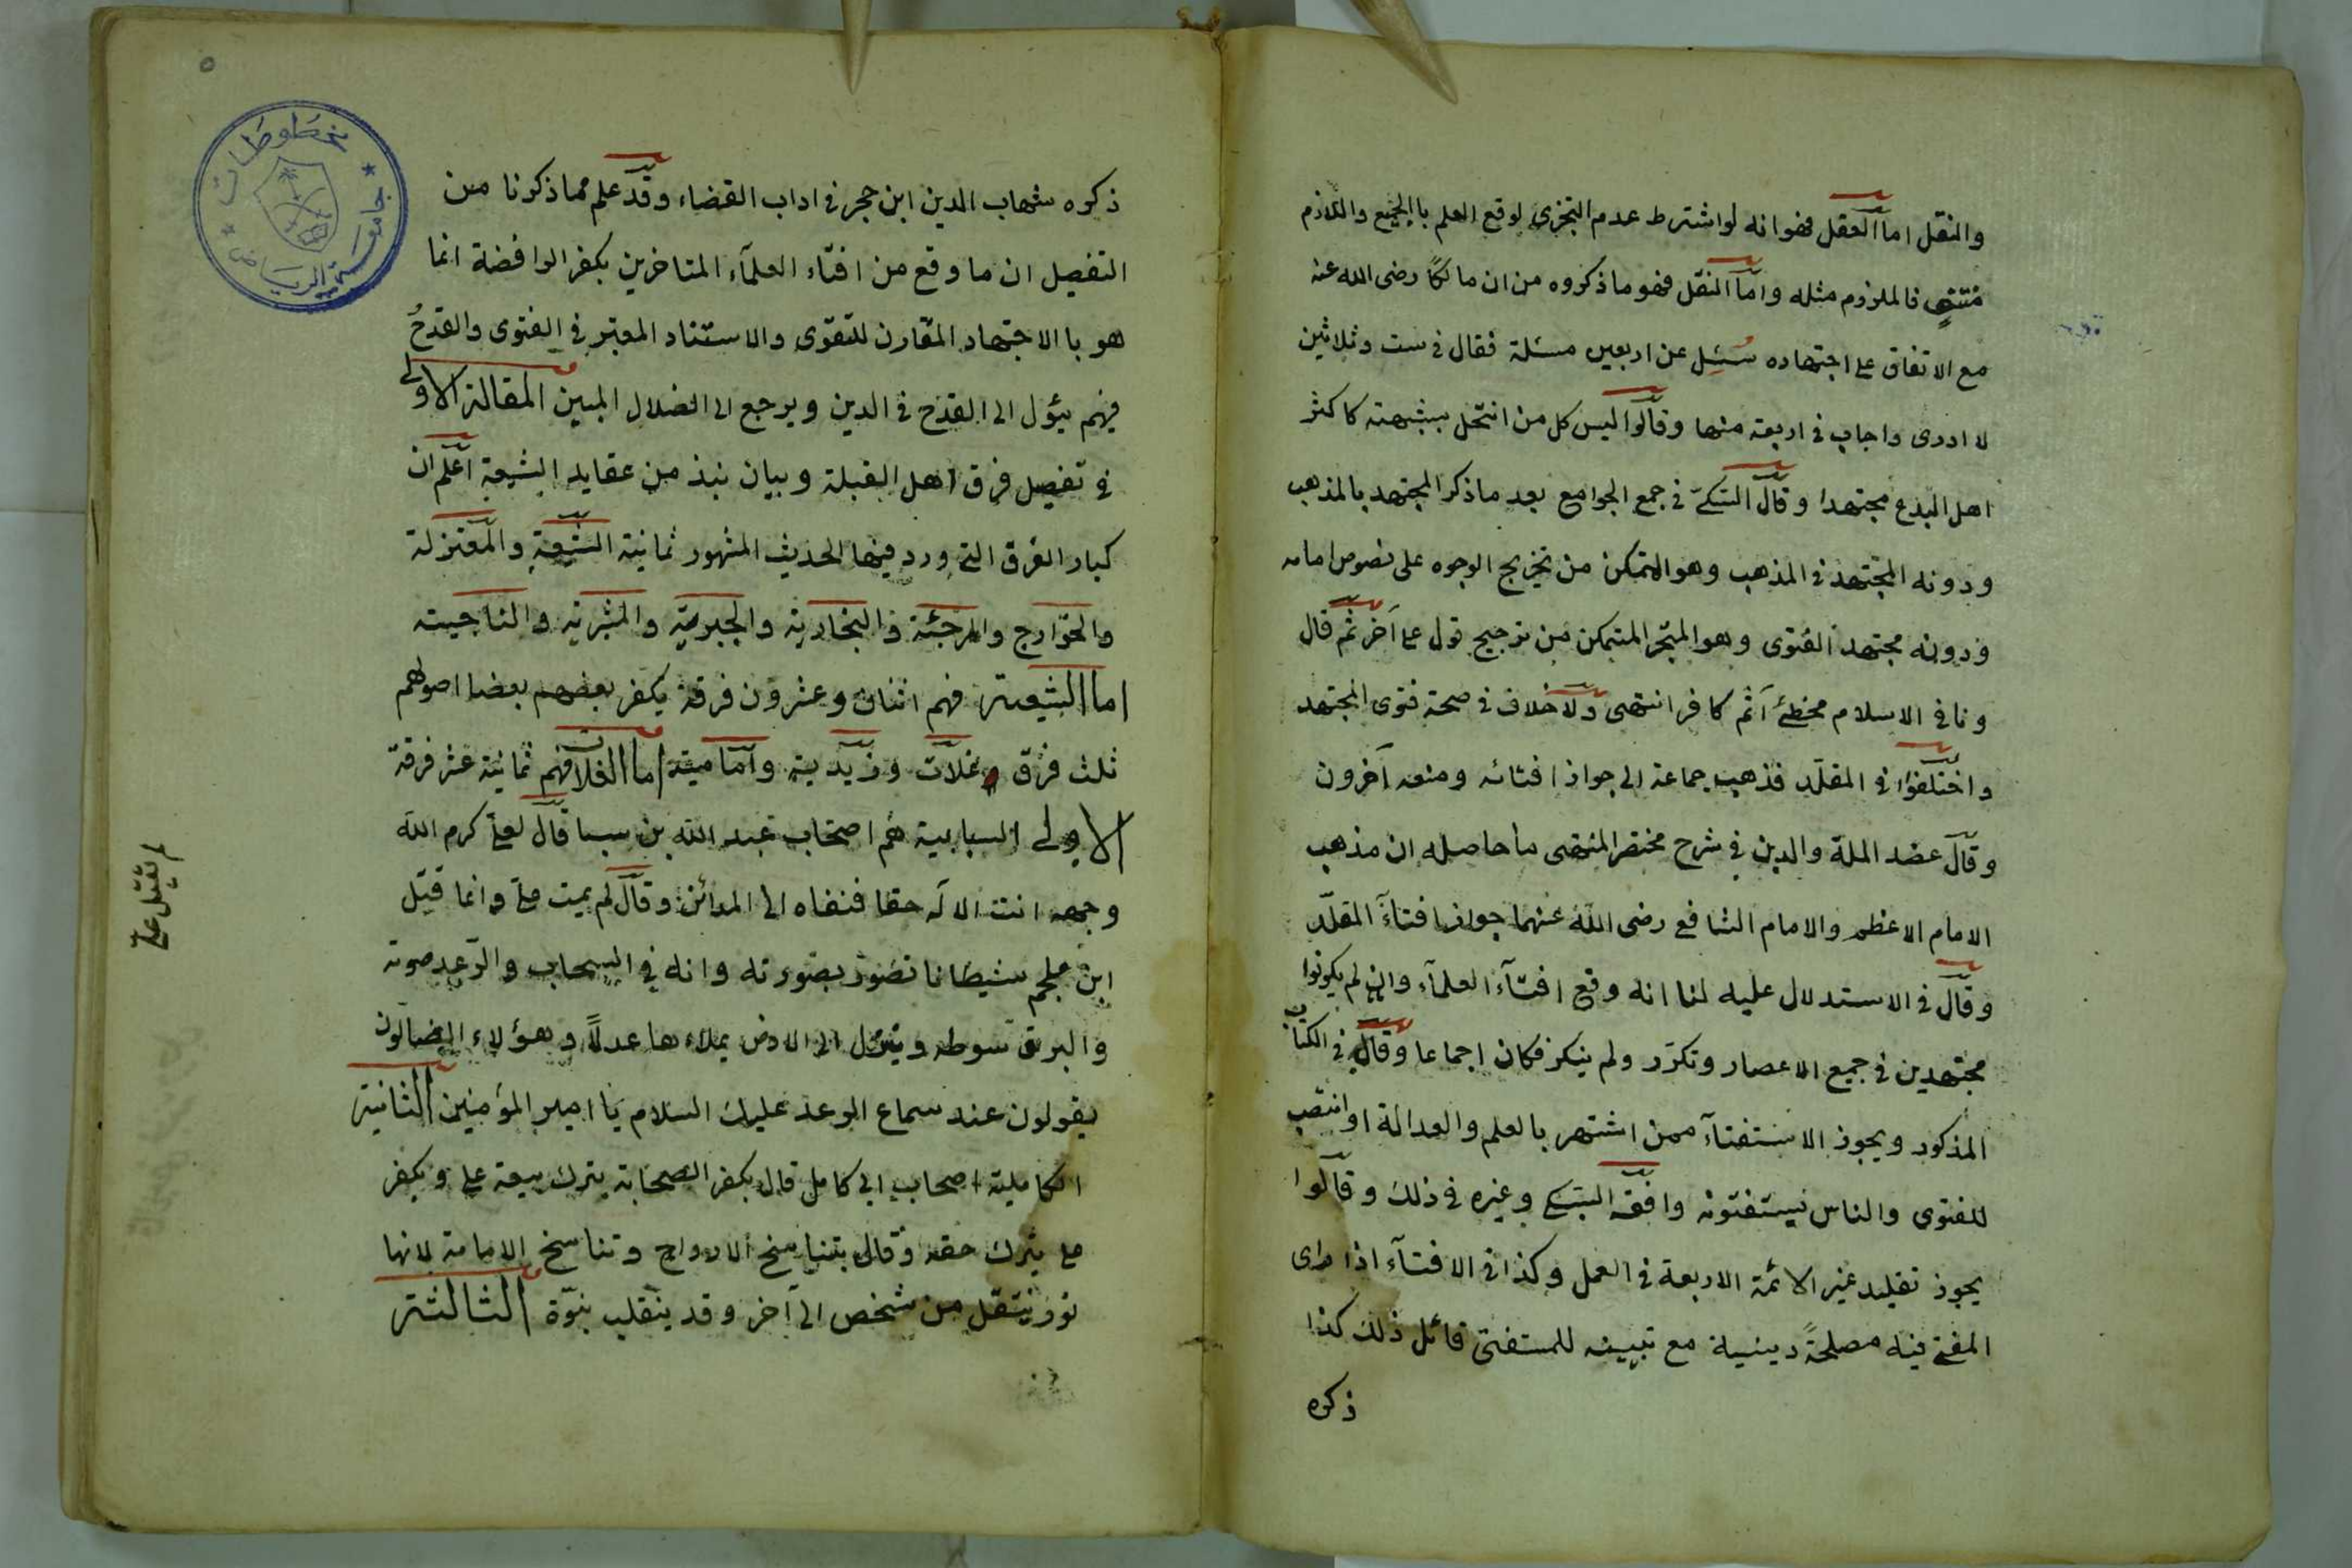 والنقل اما العقل فهو انه لو اشترط عدم التجزى لوقع العلم بالجميع واللازم
منتفٍ فالملزوم مثله واما النقل فهو ما ذكروه من ان مالكًا رضى الله عنه
مع الاتفاق على اجتهاده سُئِل عن اربعين مسئلة فقال فى ست وثلاثين
لا ادرى واجاب فى اربعة منها وقالوا ليس كل من انتحل بشبهته كاكثر
اهل البدع مجتهدا وقال السبكى فى جمع الجوامع بعد ما ذكر المجتهد بالمذهب
ودونه المجتهد فى المذهب وهو المتمكن من تخريج الوجوه على نصوص امامه
ودونه مجتهد الفتوى وهو المتبحر المتمكن من ترجيح قول على آخر ثم قال
ونافى الاسلام مخطئ آثم كافر انتهى ولا خلاف فى صحة فتوى المجتهد
واختلفوا فى المقلد فذهب جماعة الى جواز افتائه ومنعه آخرون
وقال عضد الملة والدين فى شرح مختصر المنتهى ما حاصله ان مذهب
الامام الاعظم والامام الشافعى رضى الله عنهما جواز افتآء المقلّد
وقال فى الاستدلال عليه لنا انه وقع افتآء العلمآء وان لم يكونوا
مجتهدين فى جميع الاعصار وتكرّر ولم ينكر فكان اجماعا وقال فى الكتاب
المذكور ويجوز الاستفتآء ممن اشتهر بالعلم والعدالة او انتصب
للفتوى والناس يستفتونه وافقه السبكى وغيره فى ذلك وقالوا
يجوز تقليد غير الائمة الاربعة فى العمل وكذا فى الافتآء اذا راى
المفتى فيه مصلحةً دينية مع تبيينه للمستفتى قائل ذلك كذا
ذكره
٥
مخطوطات
جامعة الرياض
ذكره شهاب الدين ابن حجر فى اداب القضاء وقد علم مما ذكرنا من
التفصيل ان ما وقع من افتاء العلمآء المتاخرين بكفر الرافضة انما
هو بالاجتهاد المقارن للتقوى والاستناد المعتبر فى الفتوى والقدحُ
فيهم يئول الى القدح فى الدين ويرجع الى الضلال المبين المقالة الاولى
فى تفصيل فرق اهل القبلة وبيان نبذ من عقايد الشيعة اعلم ان
كبار الفرق التى ورد فيها الحديث المشهور ثمانية الشيعة والمعتزلة
والخوارج والمرجئة والنجارية والجبرية والمشبهة والناجية
اما الشيعة فهم اثنان وعشرون فرقة يكفر بعضهم بعضا اصولهم
ثلث فرق غلات وزيدية وامامية اما الغلاة فهم ثمانية عشر فرقة
الاولى السبابية هم اصحاب عبد الله بن سبا قال لعلى كرم الله
وجهه انت الاله حقا فنفاه الى المدائن وقال لم يمت على وانما قتل
ابن ملجم شيطانا تصور بصورته وانه فى السحاب والرّعد صوته
والبرق سوطه وينزل الى الارض يملاءها عدلًا وهؤلاء الضالون
يقولون عند سماع الرعد عليك السلام يا امير المؤمنين الثانية
الكاملية اصحاب ابى كامل قال بكفر الصحابة بترك بيعة على وبكفر
على بترك حقه وقال بتناسخ الارواح وتناسخ الامامة لانها
نور ينتقل من شخص الى آخر وقد ينقلب نبوّة الثالثة
لم يقتل على